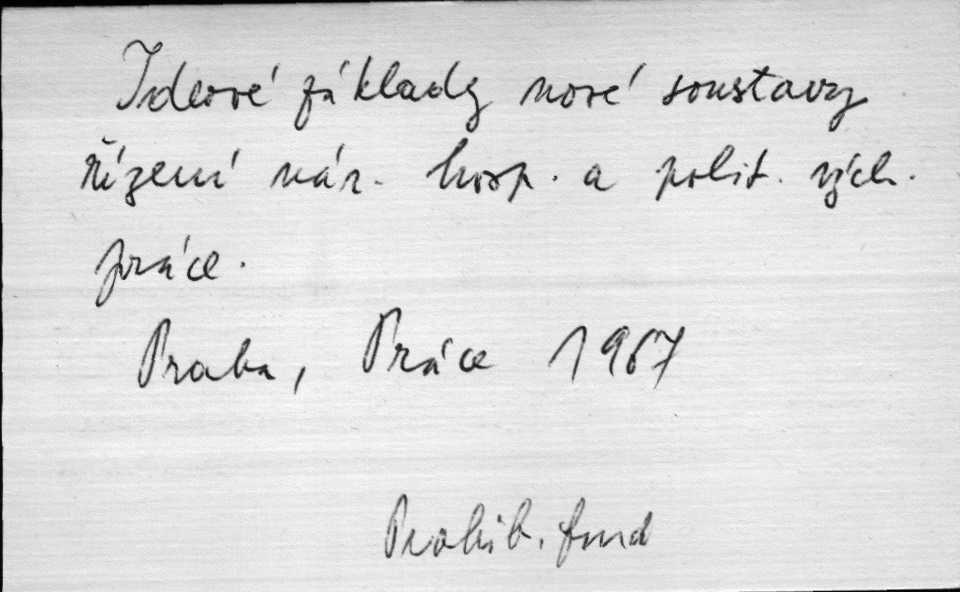 Ideové základy nové soustavy
řízení nár. hosp. a polit. vých.
práce.
Praha, Práce 1967
Prohib. fond